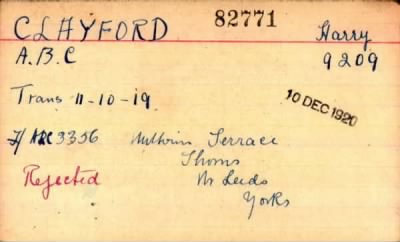 CLAYFORD 82771 Harry
A.B.C 9209
Trans 11-10-19 10 DEC 1920
3356 Terrace
Thorns
Rejected Nr Leeds
Yorks